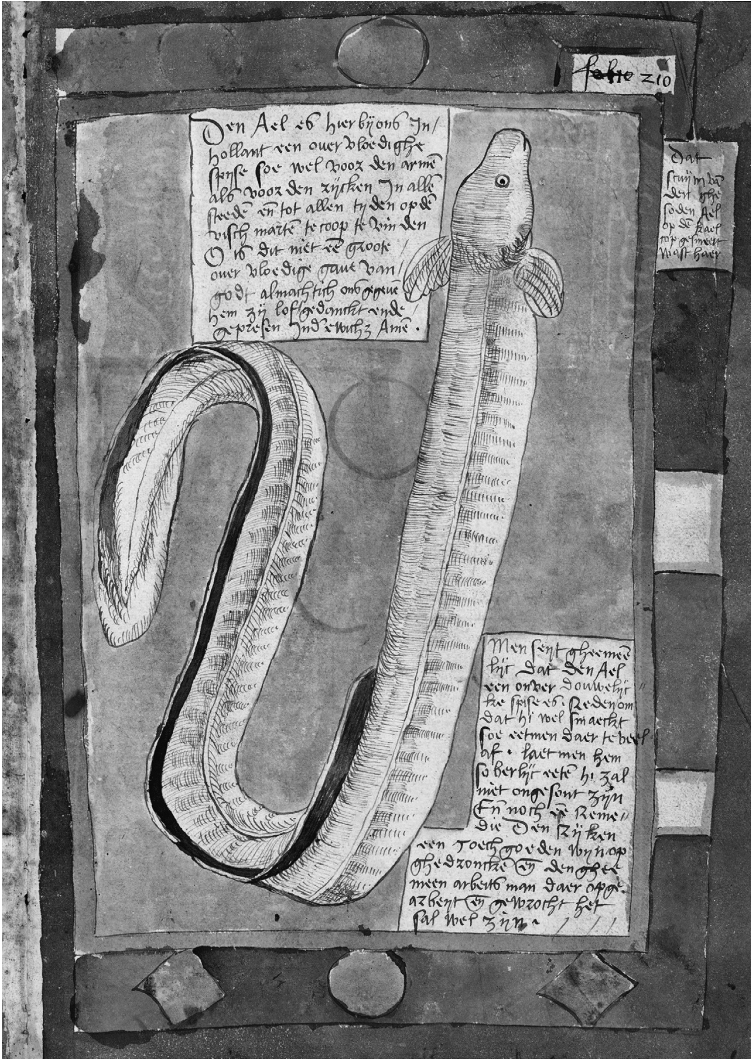 folio 210
Den Ael es hier bij ons In/
hollant een over vloedighe
spijse soe wel voor den armē
als voor den rijcken In allē
steedē eñ tot allen tijden op dē
visch marte te coop te vinden
O is dit niet eē groote
over vloedige gave van/
godt almachtich ons gegevē
hem zij lof gedanckt ende
gepresen Ind ewich3 Amē.
Dat
den ghe
soden Ael
op dē kael
cop gesmeert
wast haer
Men seyt gheemeē
lijc dat den Ael
een onver douwelijc
ke spise es Reden om
dat hi wel smaeckt
soe eetmen daer te veel
af. laet men hem
soberlijc eetē hi zal
niet ongesont zijn
En noch eē Reme/
die Den Rijcken
een Toech goeden wijn op
ghedronckē eñ den ghee
meen arbeits man daer op ge
arbeyt eñ gewrocht het
sal wel zijn.